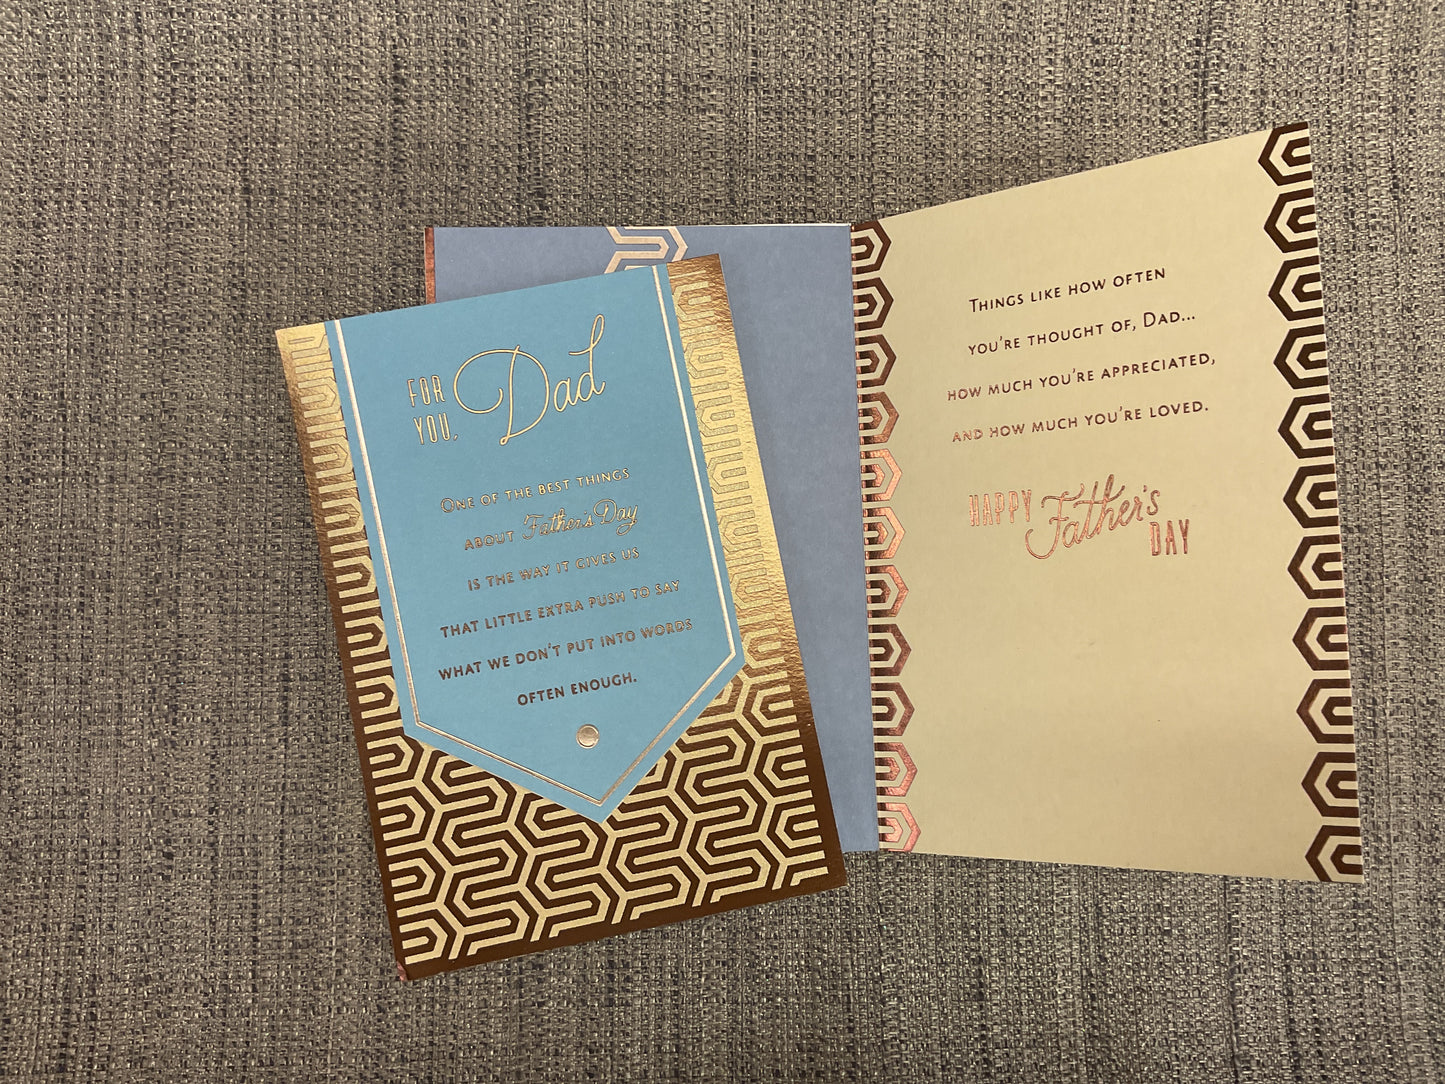 FOR YOU, Dad
ONE OF THE BEST THINGS
ABOUT Father's Day
IS THE WAY IT GIVES US
THAT LITTLE EXTRA PUSH TO SAY
WHAT WE DON'T PUT INTO WORDS
OFTEN ENOUGH.
THINGS LIKE HOW OFTEN
YOU'RE THOUGHT OF, DAD...
HOW MUCH YOU'RE APPRECIATED,
AND HOW MUCH YOU'RE LOVED.
HAPPY Father's DAY